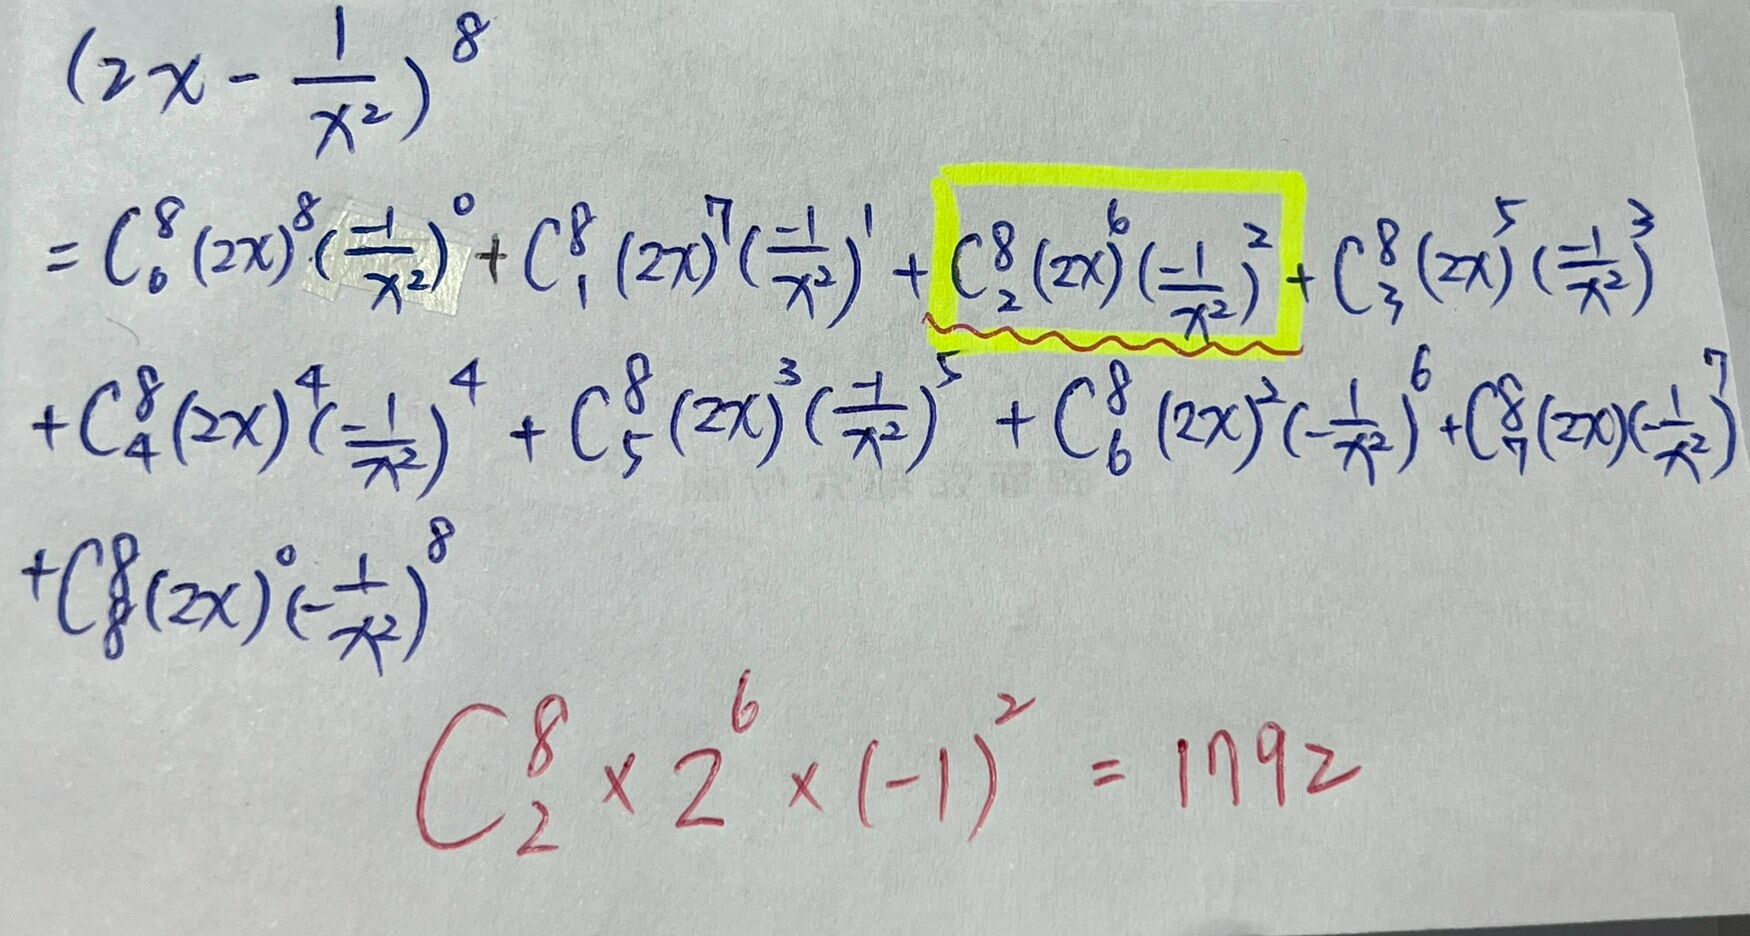 (2x - 1/x²)⁸
= C⁸₀(2x)⁸(-1/x²)⁰ + C⁸₁(2x)⁷(-1/x²)¹ + C⁸₂(2x)⁶(-1/x²)² + C⁸₃(2x)⁵(-1/x²)³
+ C⁸₄(2x)⁴(-1/x²)⁴ + C⁸₅(2x)³(-1/x²)⁵ + C⁸₆(2x)²(-1/x²)⁶ + C⁸₇(2x)(-1/x²)⁷
+ C⁸₈(2x)⁰(-1/x²)⁸
C⁸₂ × 2⁶ × (-1)² = 1792